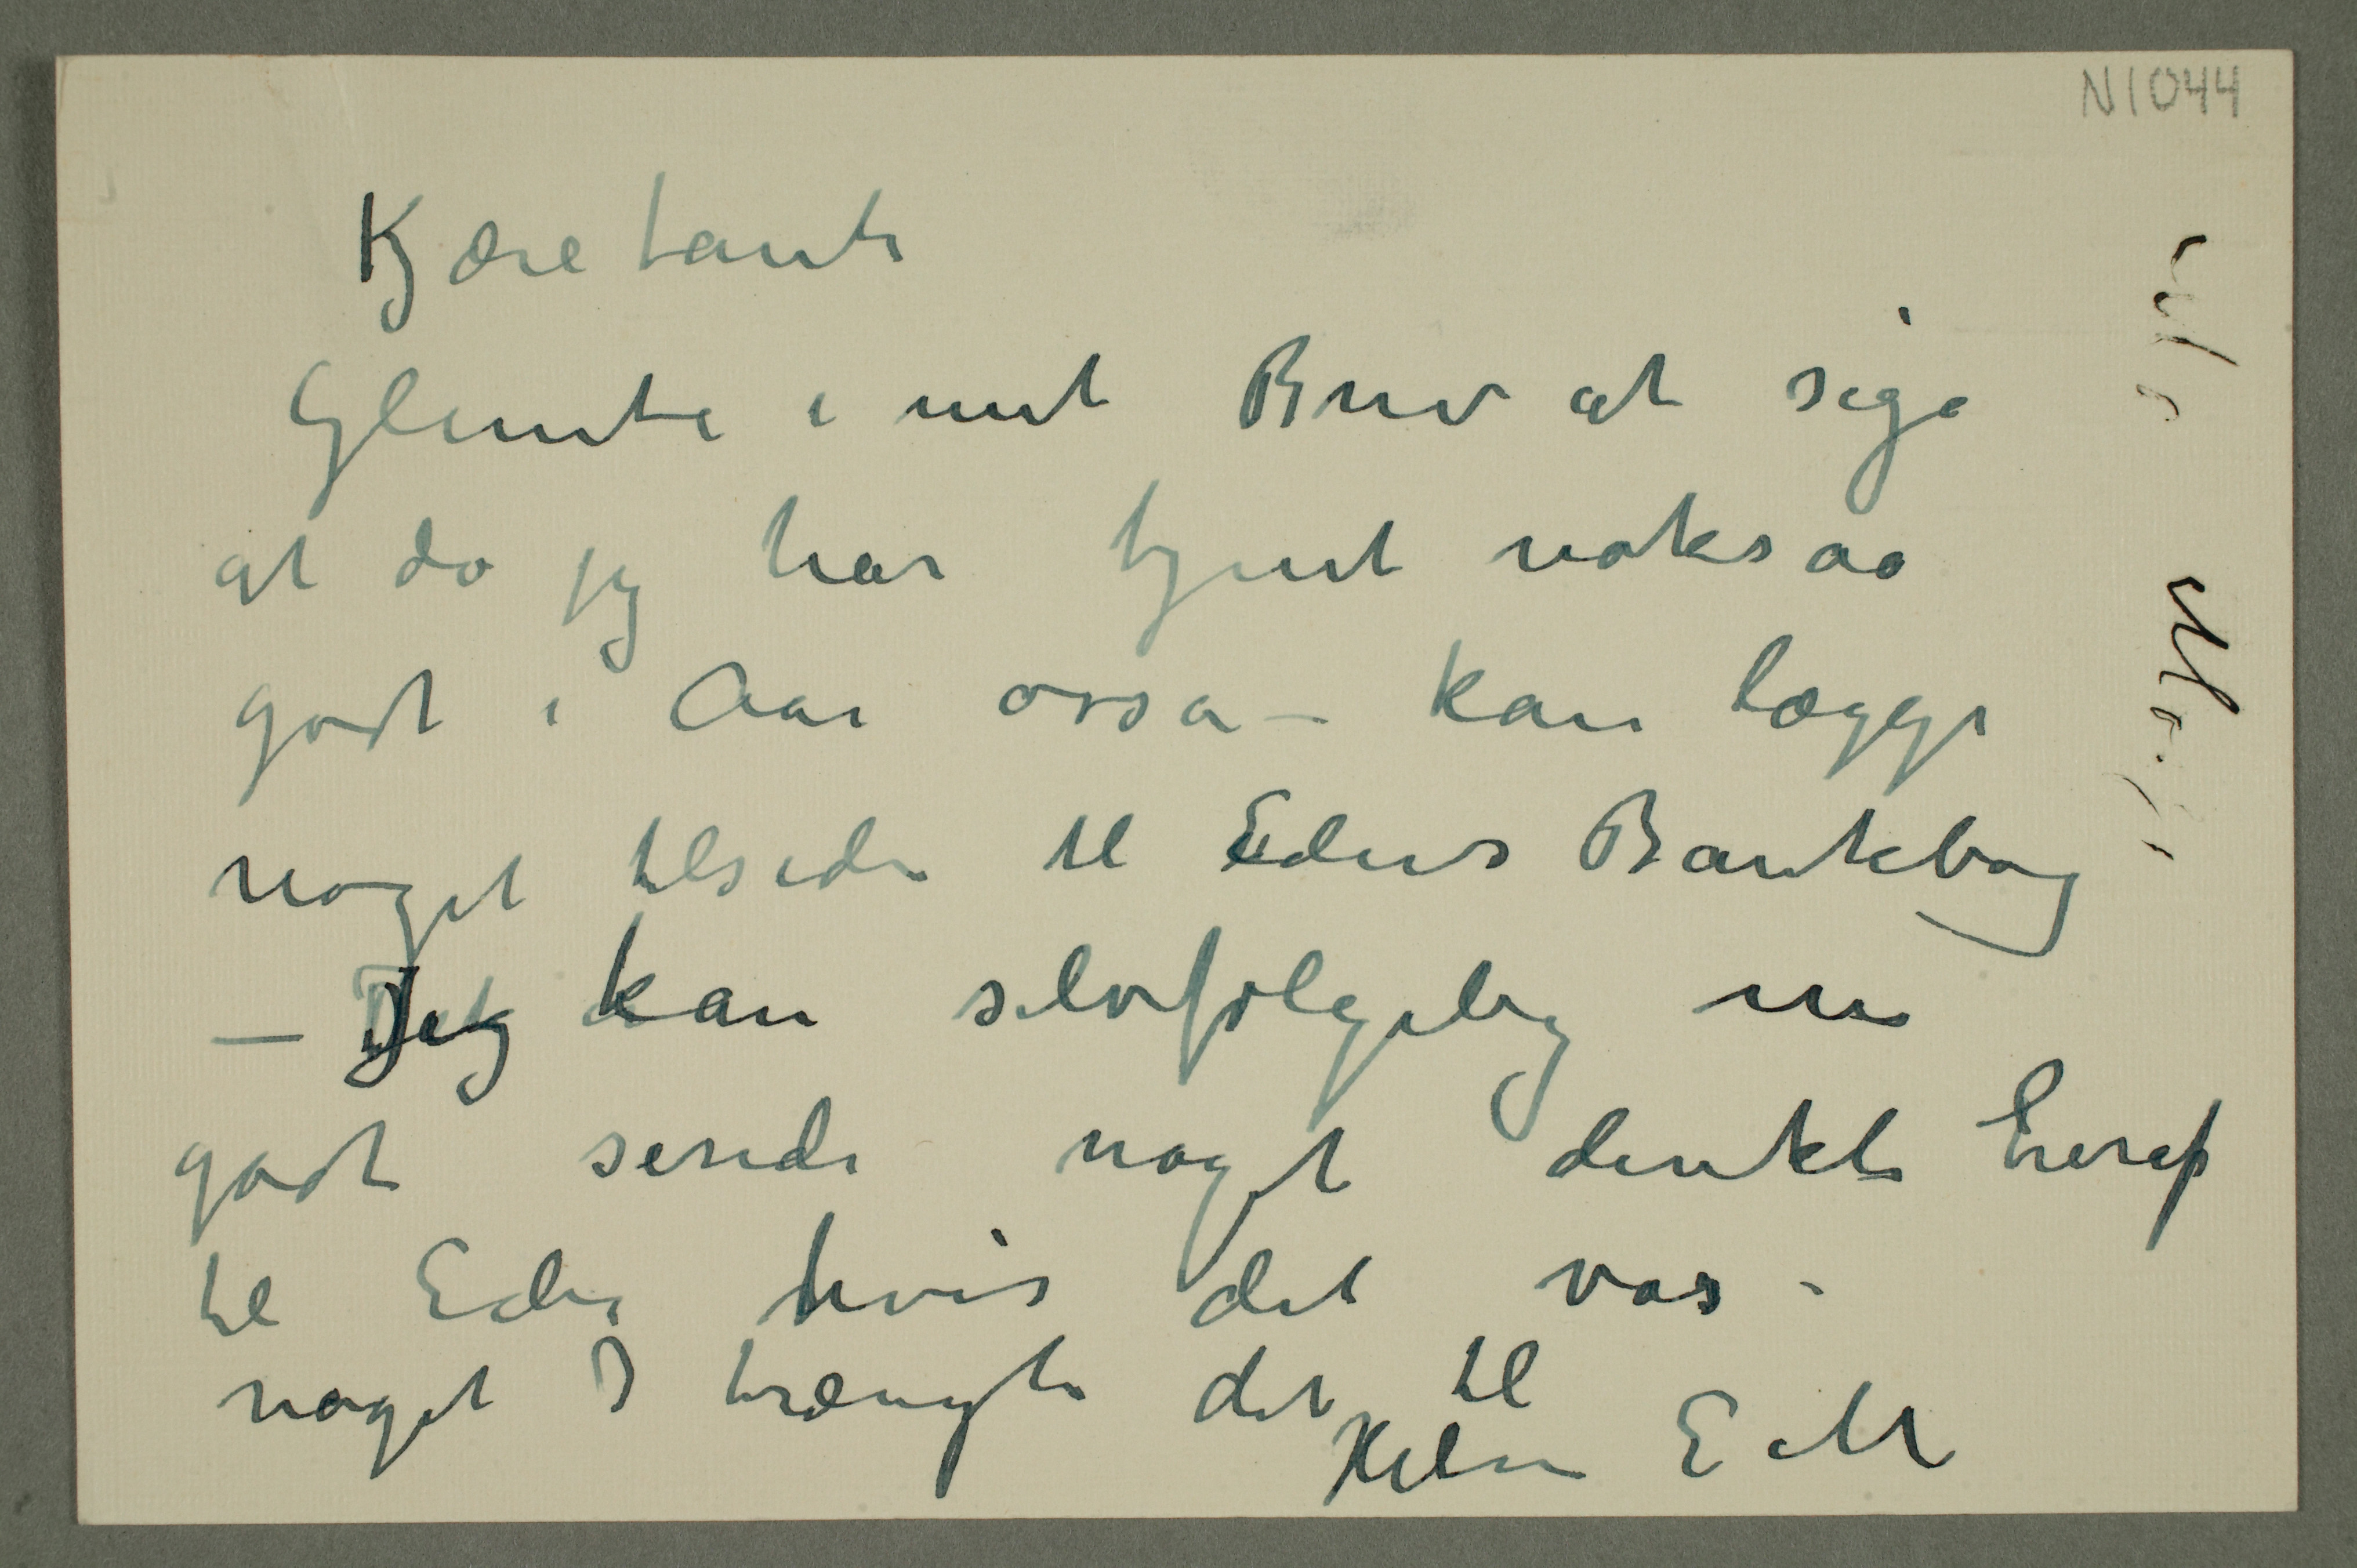 N 1044
Kjære tante
Glemte i mit Brev at sige
at da jeg har tjent noksaa
godt i Aar ossa – kan lægge
noget tilside til Eders Bankbog
– Jeg kan selvfølgelig nu
godt sende noget direkte heraf
til Eder hvis det var
noget I trængte det til
Hilsen E M